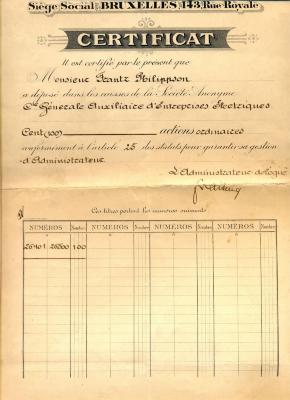 Siège Social: BRUXELLES, 143, Rue Royale
CERTIFICAT
Il est certifié par le présent que
Monsieur Frantz Philippson
a déposé dans les caisses de la Société Anonyme
Cie Générale Auxiliaire d'Entreprises Electriques
Cent (100) actions ordinaires
conformément à l'article 25 des statuts pour garantir sa gestion
d'Administrateur.
L'Administrateur délégué
Ces titres portent les numéros suivants
NUMÉROS Nombre NUMÉROS Nombre NUMÉROS Nombre NUMÉROS Nombre
26401 26500 100